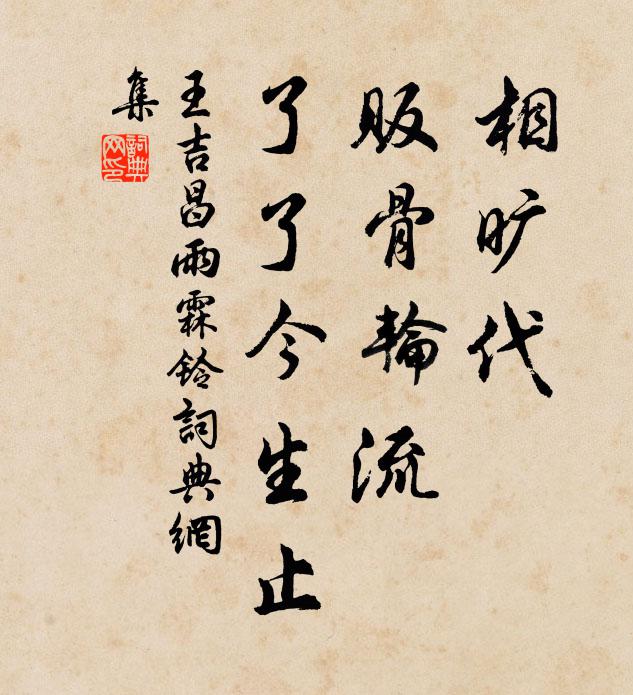 相旷代
贩骨轮流
了了今生止
王吉昌雨霖铃詞典網
集
詞典
网印